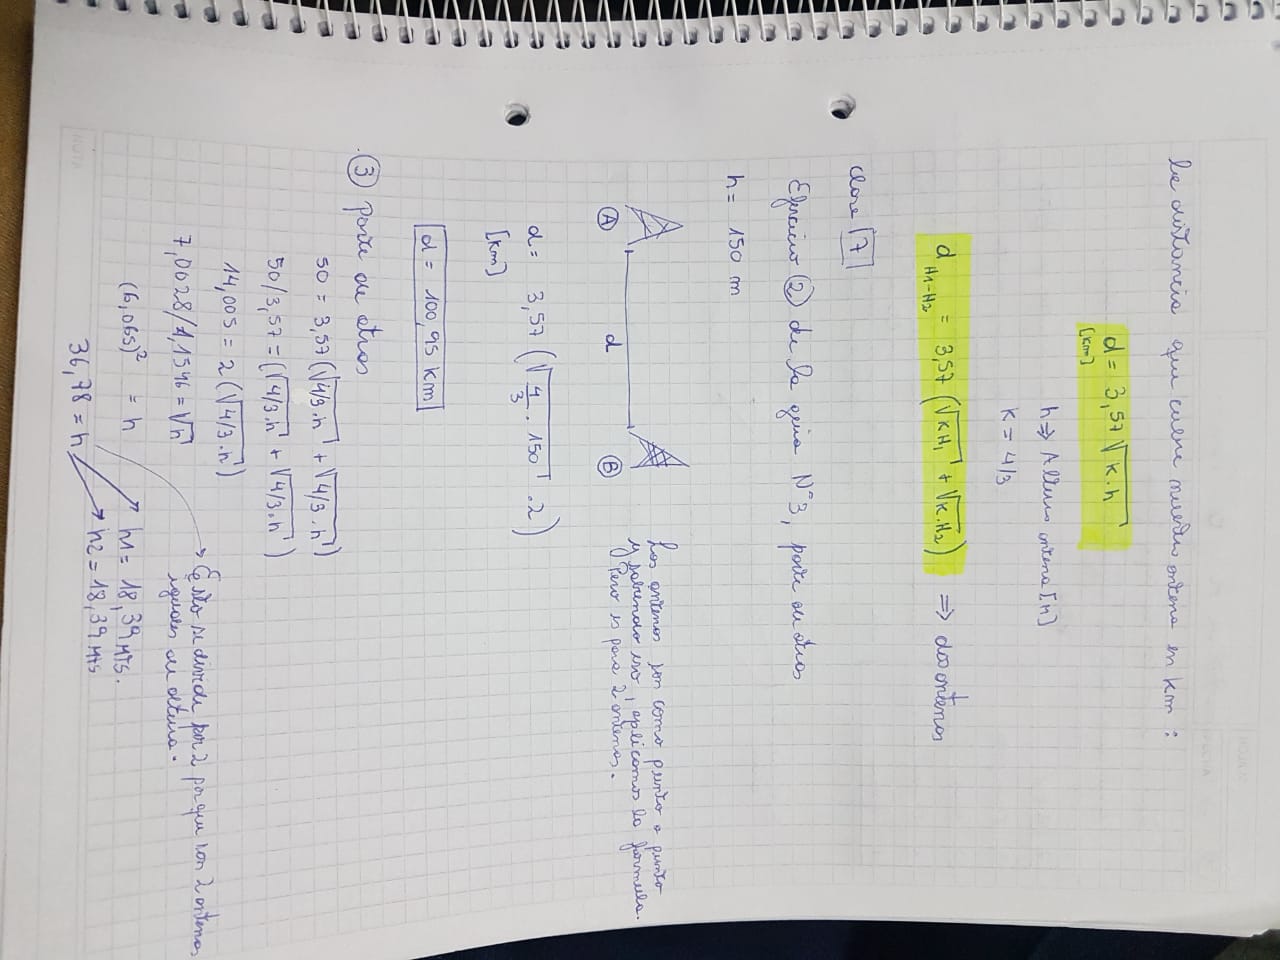 La distancia que cubre nuestra antena en Km :
d = 3,57 √K.h
[Km]
h => Altura antena [M]
K = 4/3
d H1-H2 = 3,57 (√KH1 + √K.H2) => dos antenas
Clase 7
Ejercicio 2 de la guia N°3, parte de atras
h = 150 m
A d B
Las antenas son como punto a punto
y sabiendo eso, aplicamos la formula.
Pero es para 2 antenas.
d = 3,57 (√4/3 . 150 .2)
[Km]
d = 100,95 Km
3 parte de atras
50 = 3,57 (√4/3.h + √4/3.h)
50/3,57 = (√4/3.h + √4/3.h)
14,005 = 2 (√4/3.h)
7,0028/1,1546 = √h
Esto se divide por 2 porque son 2 antenas
iguales de altura.
(6,065)² = h
36,78 = h
h1 = 18,39 MTS.
h2 = 18,39 MTS